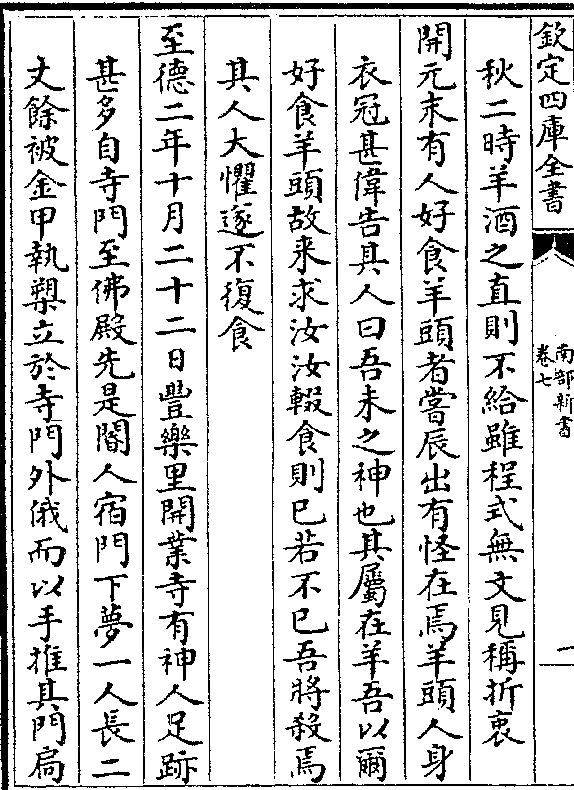 欽定四庫全書
南部新書
卷七
一
秋二時羊酒之直則不給雖程式無文見稱折衷
開元末有人好食羊頭者嘗辰出有怪在焉羊頭人身
衣冠甚偉告其人曰吾未之神也其屬在羊吾以爾
好食羊頭故来求汝汝輟食則已若不已吾將殺焉
其人大懼遂不復食
至德二年十月二十二日豐樂里開業寺有神人足跡
甚多自寺門至佛殿先是閽人宿門下夢一人長二
丈餘被金甲執槊立於寺門外俄而以手推其門扃